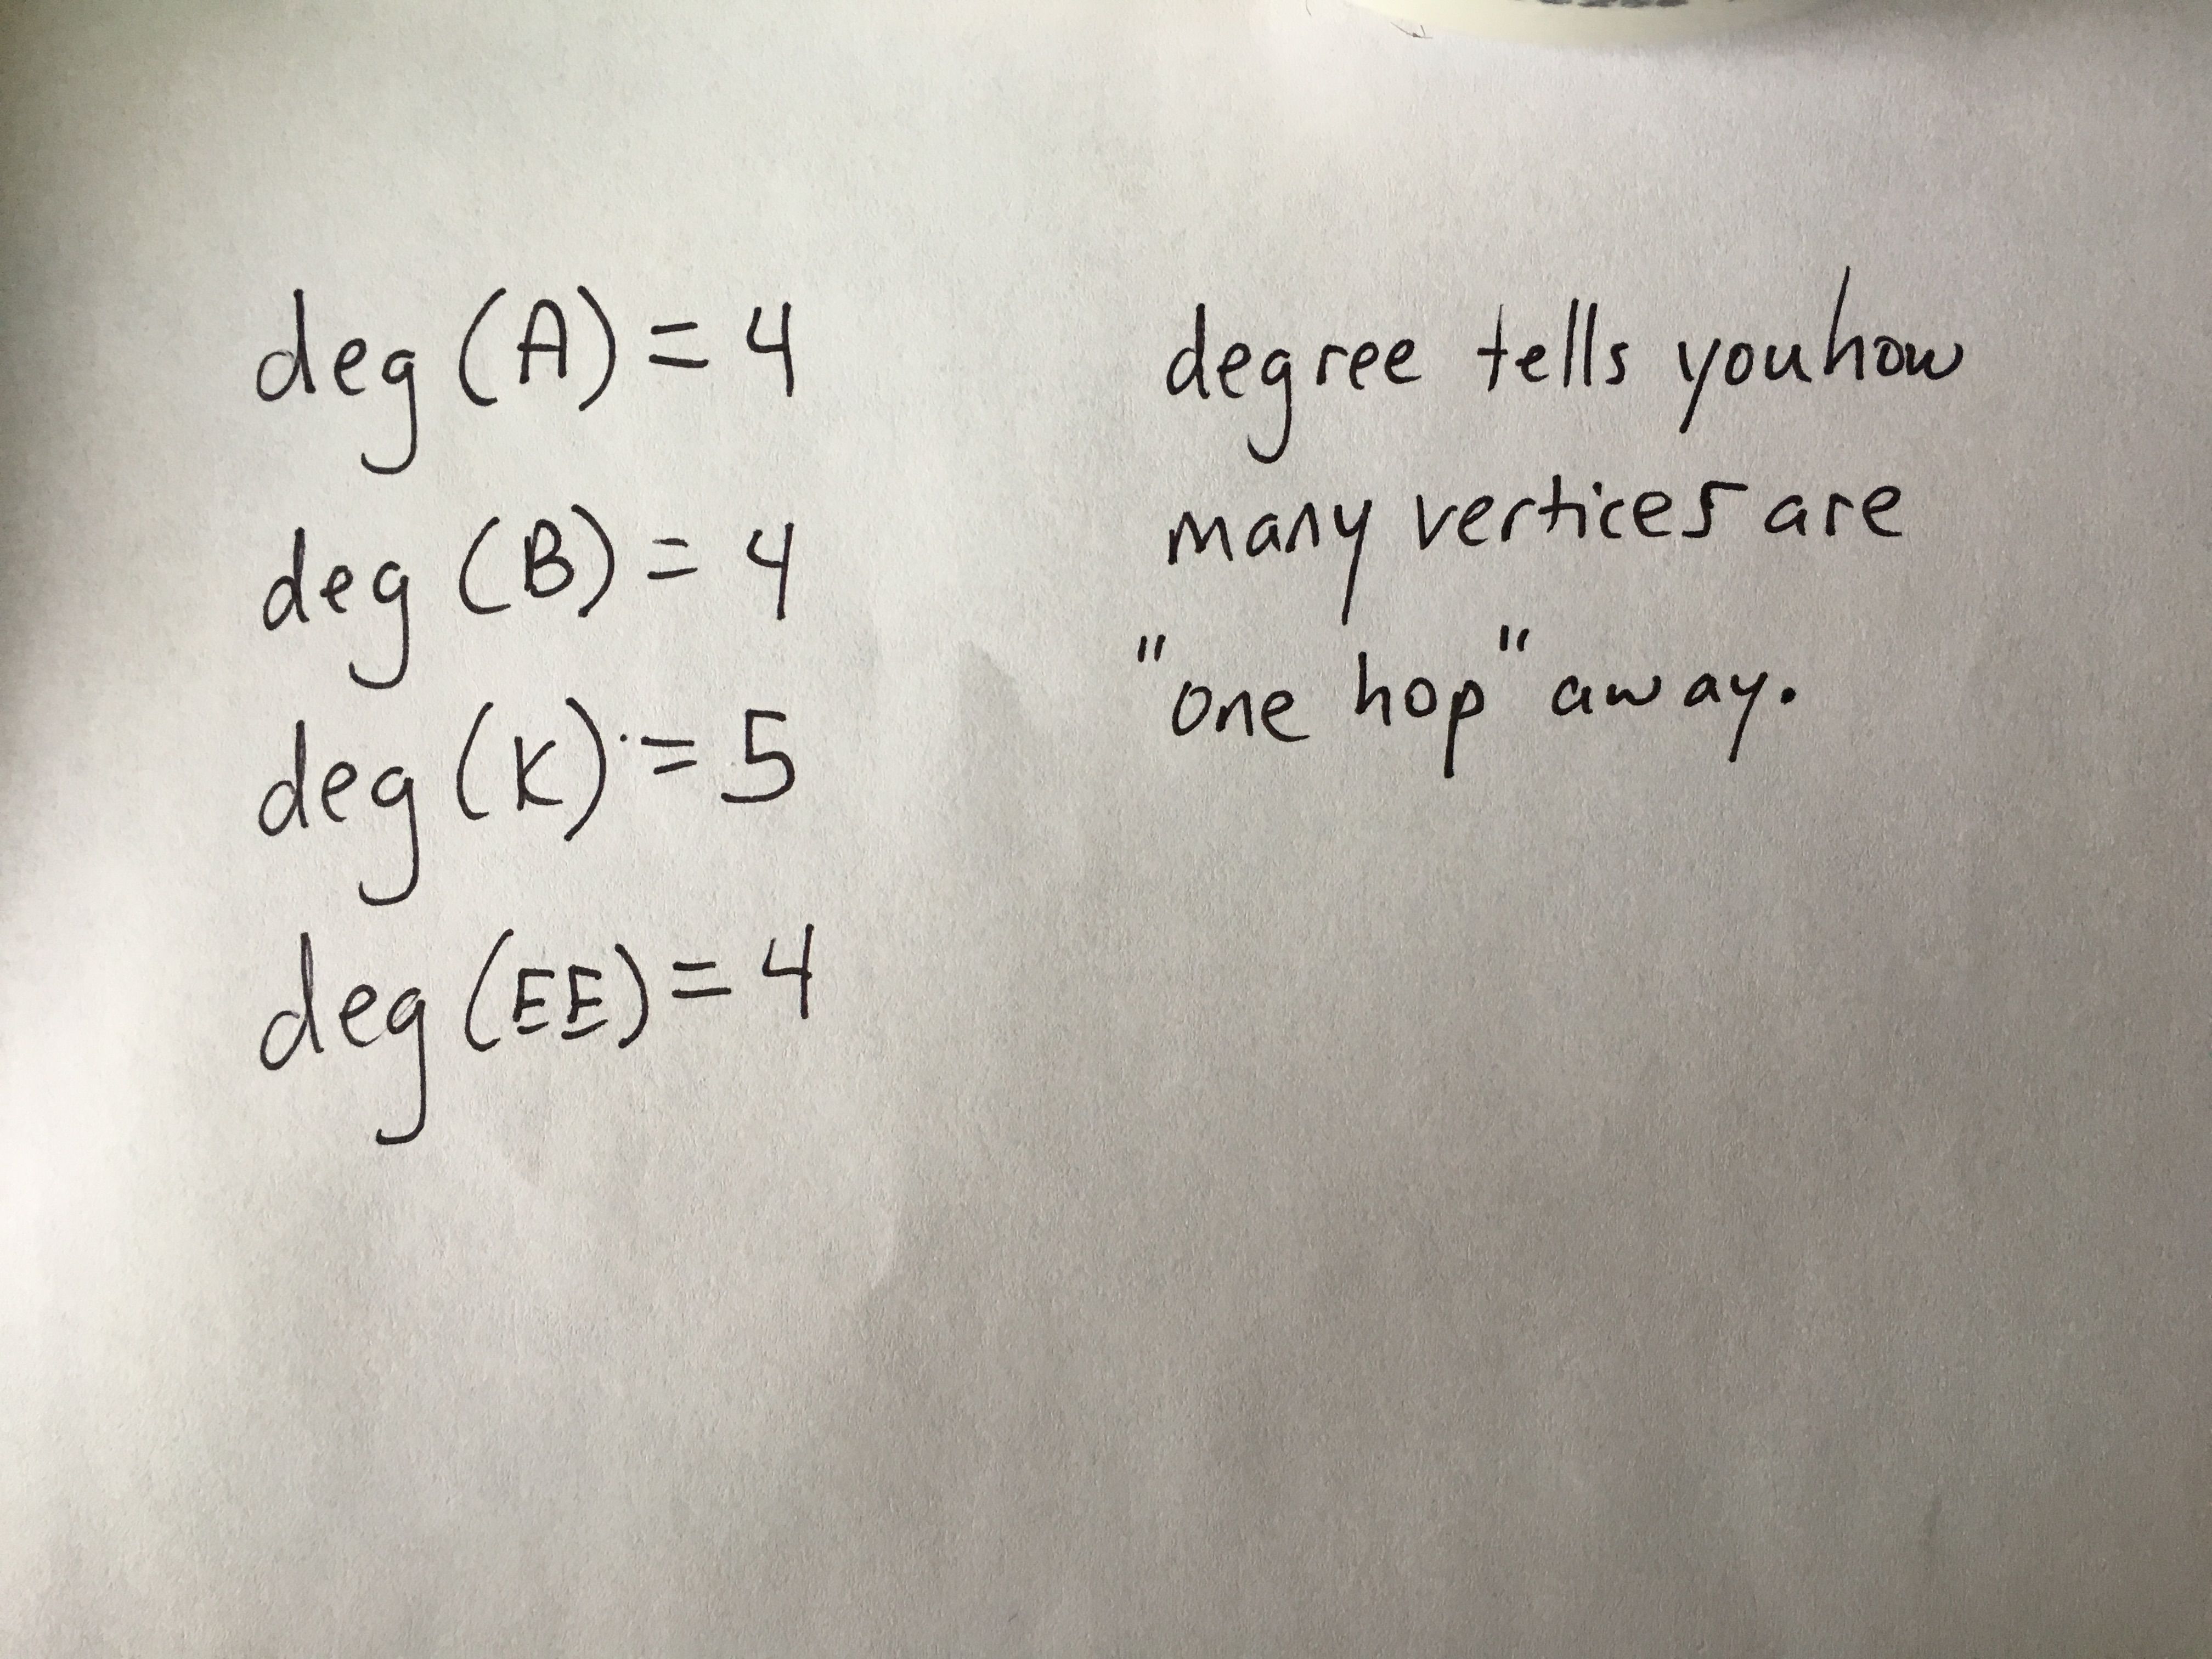 deg (A) = 4
deg (B) = 4
deg (K) = 5
deg (EE) = 4
degree tells you how
many vertices are
"one hop" away.